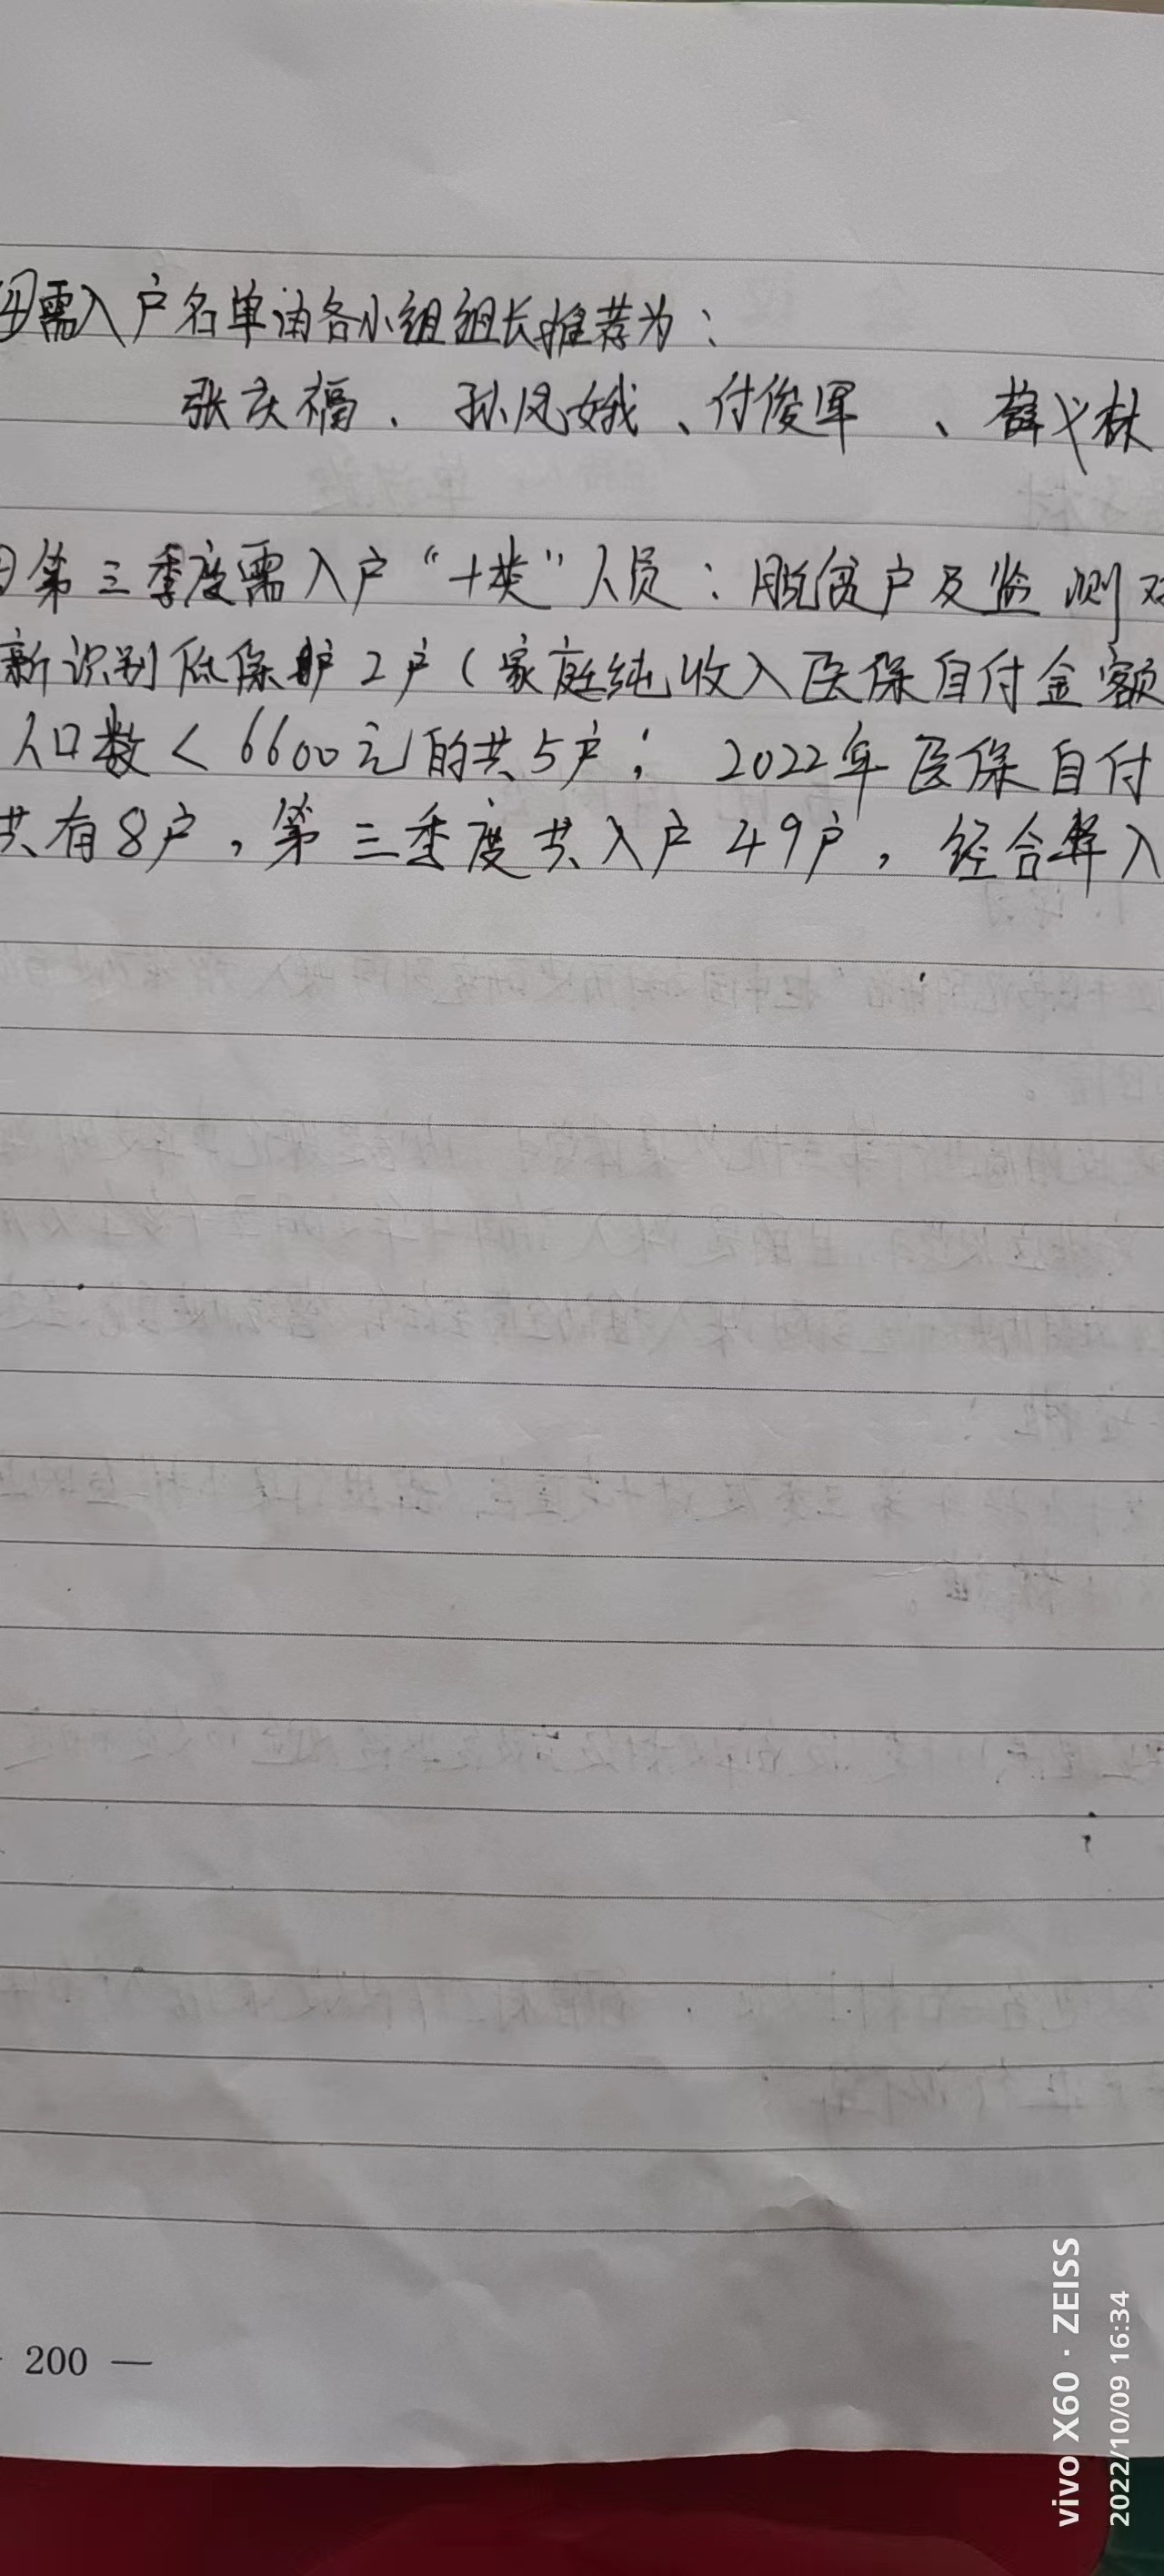 ④需入户名单由各小组组长推荐为：
张庆福、孙凤娥、付俊军、薛义林
第三季度需入户“十类”人员：脱贫户及监测对
新识别低保户2户（家庭纯收入医保自付金额
人口数＜6600元的共5户；2022年医保自付
共有8户，第三季度共入户49户，经合并入
200 —
vivo X60 · ZEISS
2022/10/09 16:34